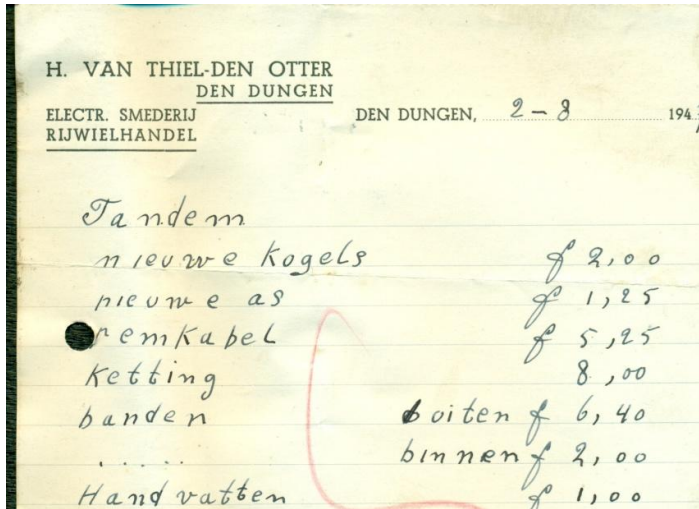 H. VAN THIEL-DEN OTTER
DEN DUNGEN
ELECTR. SMEDERIJ
RIJWIELHANDEL
DEN DUNGEN, 2-8 194
Tandem
nieuwe Kogels f 2,00
nieuwe as f 1,25
remKabel f 5,25
Ketting 8,00
banden buiten f 6,40
..... binnen f 2,00
Handvatten f 1,00